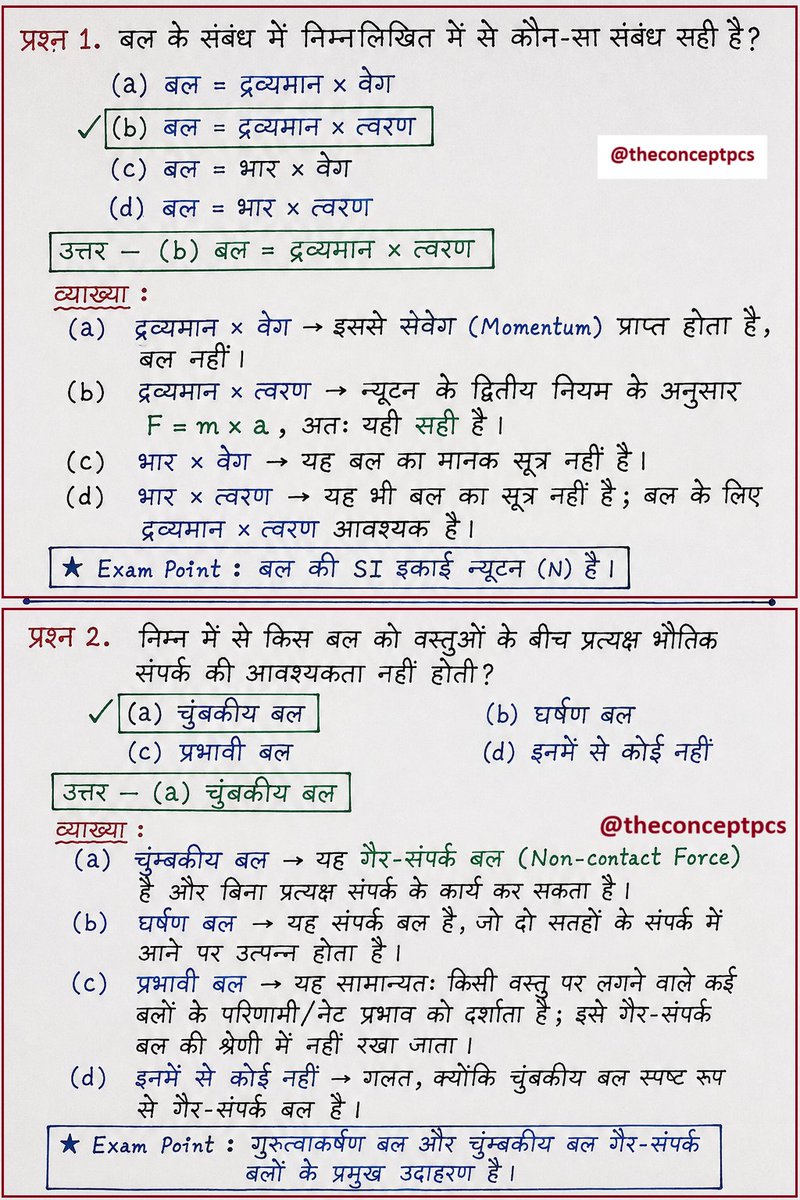 प्रश्न 1. बल के संबंध में निम्नलिखित में से कौन-सा संबंध सही है?
(a) बल = द्रव्यमान × वेग
✓ (b) बल = द्रव्यमान × त्वरण
@theconceptpcs
(c) बल = भार × वेग
(d) बल = भार × त्वरण
उत्तर – (b) बल = द्रव्यमान × त्वरण
व्याख्या :
(a) द्रव्यमान × वेग → इससे सेवेग (Momentum) प्राप्त होता है,
बल नहीं।
(b) द्रव्यमान × त्वरण → न्यूटन के द्वितीय नियम के अनुसार
F = m × a , अतः यही सही है।
(c) भार × वेग → यह बल का मानक सूत्र नहीं है।
(d) भार × त्वरण → यह भी बल का सूत्र नहीं है; बल के लिए
द्रव्यमान × त्वरण आवश्यक है।
★ Exam Point : बल की SI इकाई न्यूटन (N) है।
प्रश्न 2. निम्न में से किस बल को वस्तुओं के बीच प्रत्यक्ष भौतिक
संपर्क की आवश्यकता नहीं होती?
✓ (a) चुंबकीय बल (b) घर्षण बल
(c) प्रभावी बल (d) इनमें से कोई नहीं
उत्तर – (a) चुंबकीय बल
व्याख्या :
@theconceptpcs
(a) चुंम्बकीय बल → यह गैर-संपर्क बल (Non-contact Force)
है और बिना प्रत्यक्ष संपर्क के कार्य कर सकता है।
(b) घर्षण बल → यह संपर्क बल है, जो दो सतहों के संपर्क में
आने पर उत्पन्न होता है।
(c) प्रभावी बल → यह सामान्यतः किसी वस्तु पर लगने वाले कई
बलों के परिणामी/नेट प्रभाव को दर्शाता है; इसे गैर-संपर्क
बल की श्रेणी में नहीं रखा जाता।
(d) इनमें से कोई नहीं → गलत, क्योंकि चुंबकीय बल स्पष्ट रूप
से गैर-संपर्क बल है।
★ Exam Point : गुरुत्वाकर्षण बल और चुंम्बकीय बल गैर-संपर्क
बलों के प्रमुख उदाहरण है।